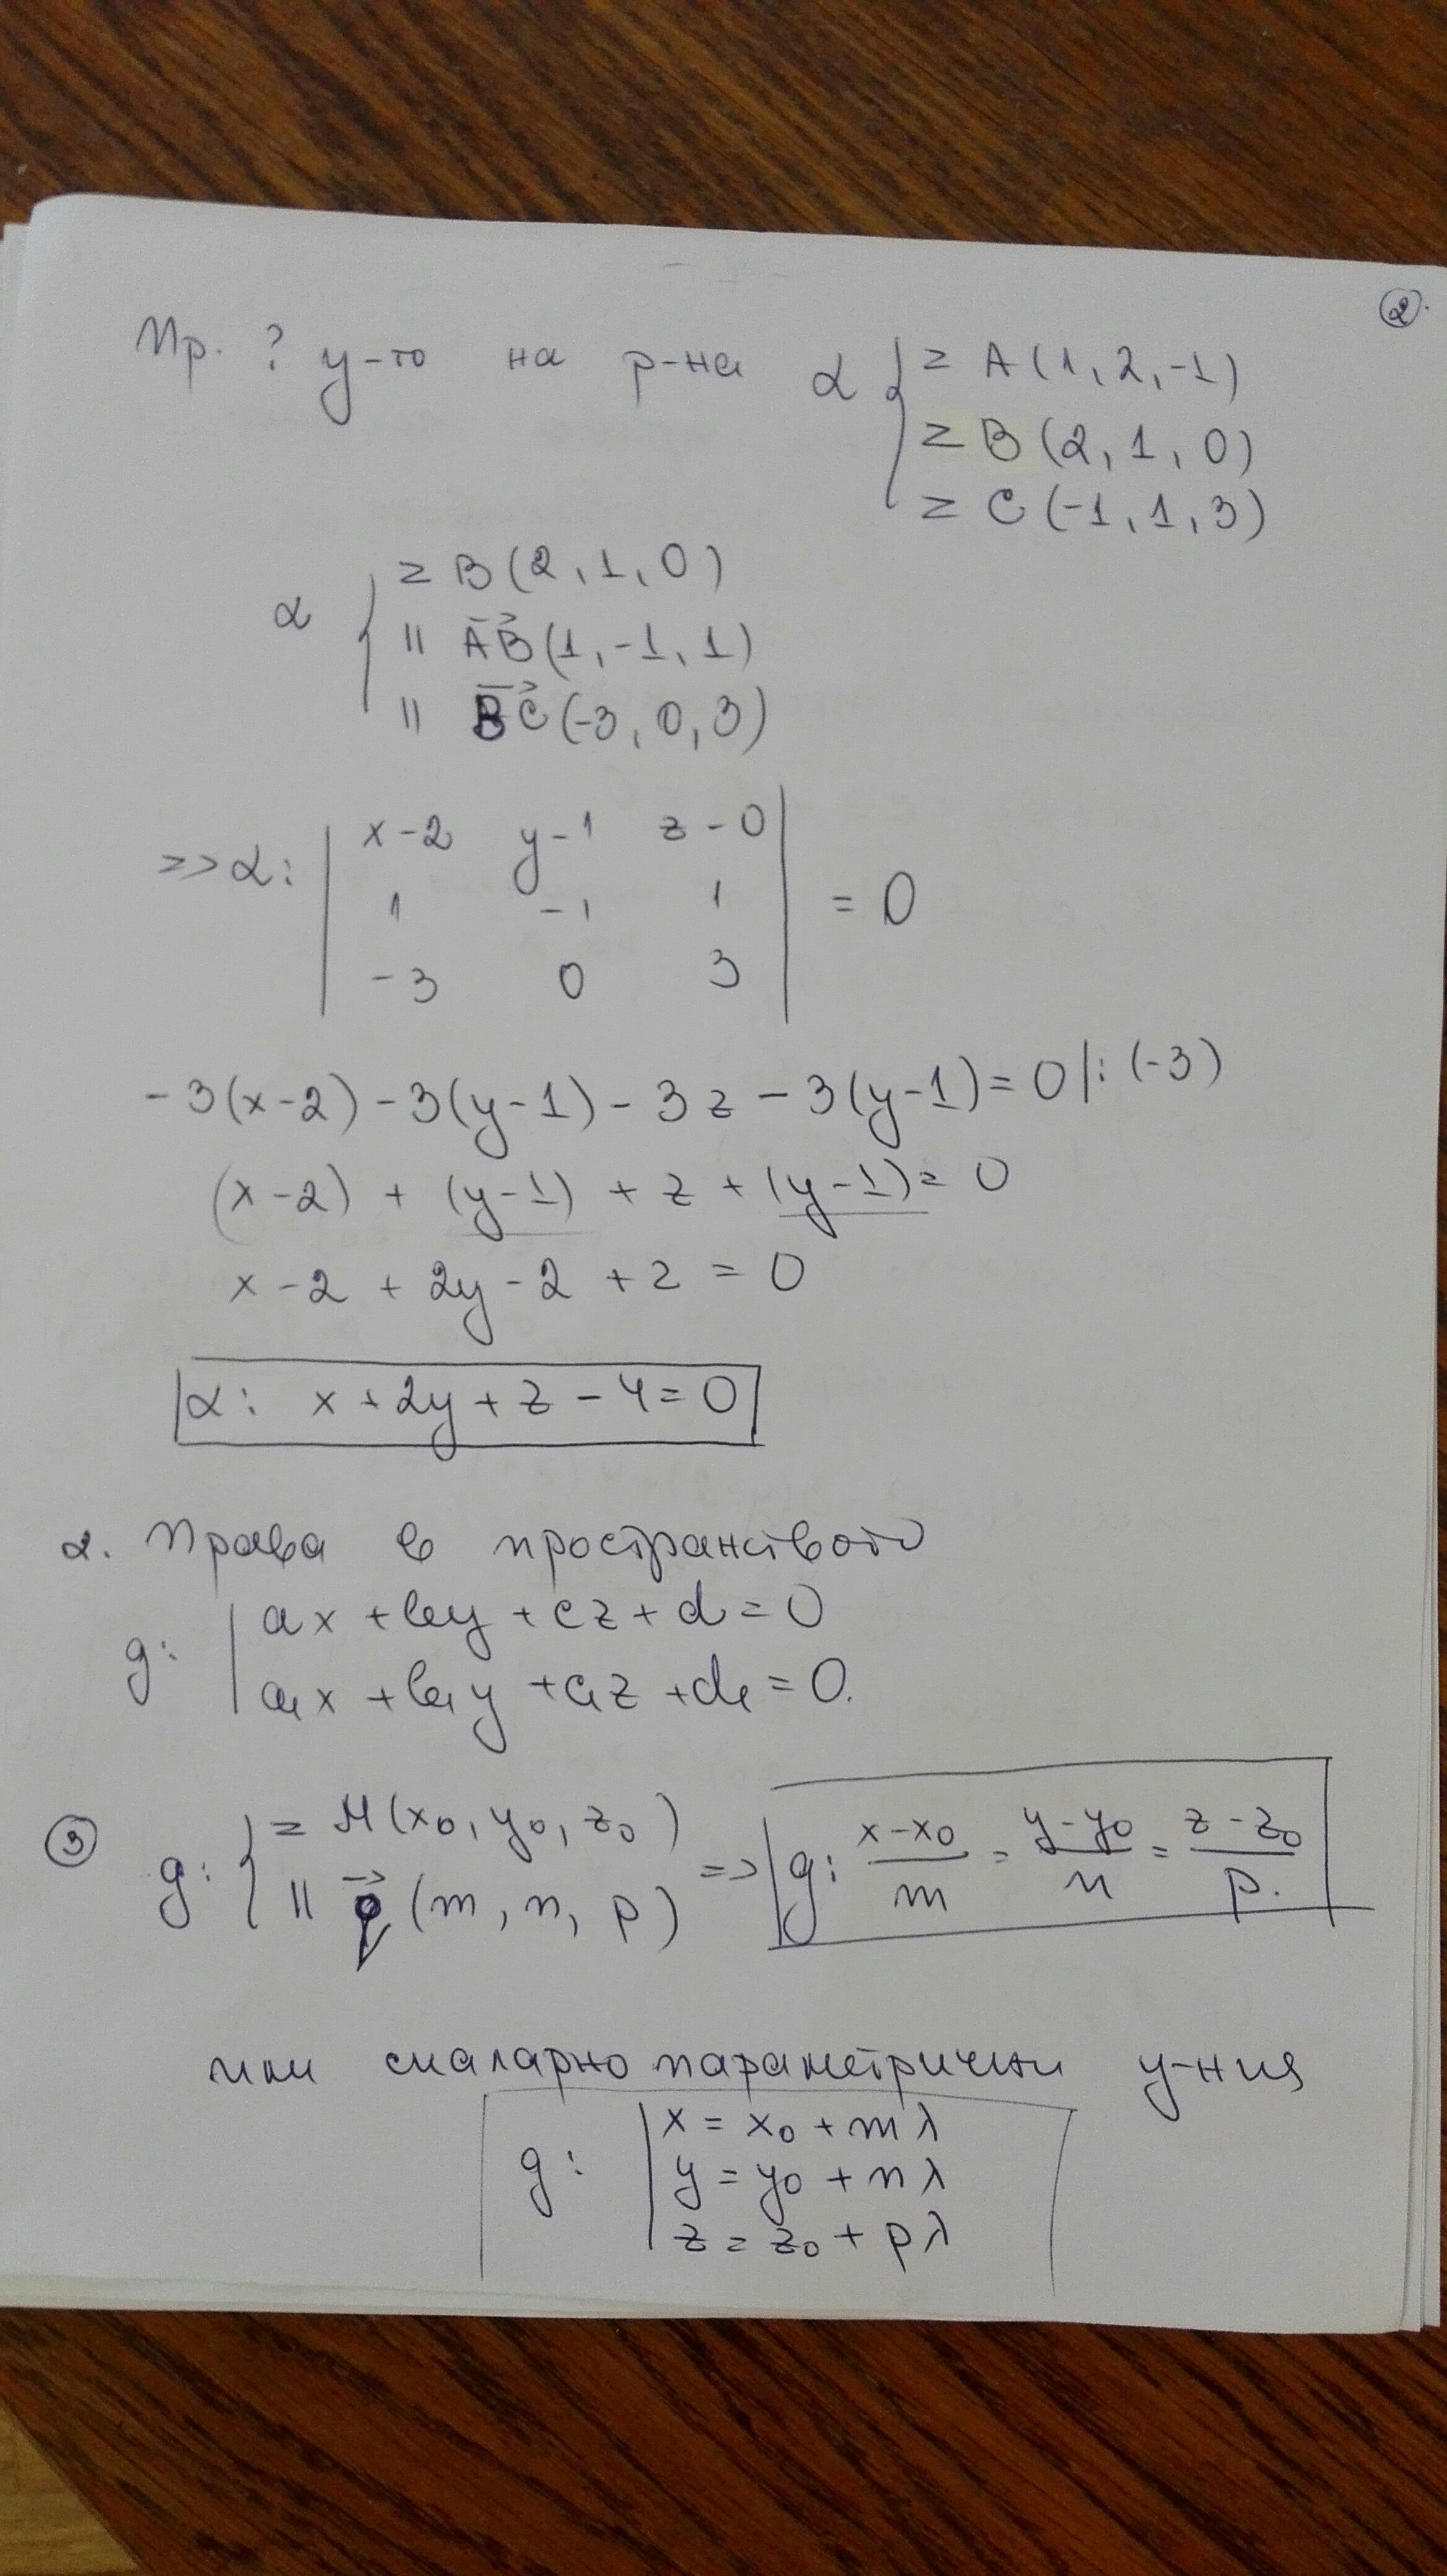 ②.
Пр. ? у-то на р-на α { z A(1, 2, -1)
z B(2, 1, 0)
z C(-1, 1, 3)
α { z B(2, 1, 0)
|| AB(1, -1, 1)
|| BC(-3, 0, 3)
=> α: | x-2 y-1 z-0 |
| 1 -1 1 | = 0
| -3 0 3 |
-3(x-2) - 3(y-1) - 3z - 3(y-1) = 0 |: (-3)
(x-2) + (y-1) + z + (y-1) = 0
x - 2 + 2y - 2 + z = 0
α: x + 2y + z - 4 = 0
2. Права в пространството
g: | ax + by + cz + d = 0
| a₁x + b₁y + c₁z + d₁ = 0.
③ g: { z M(x₀, y₀, z₀)
|| q(m, n, p) => g: (x-x₀)/m = (y-y₀)/n = (z-z₀)/p.
или скаларно параметрични у-ния
g: | x = x₀ + mλ
| y = y₀ + nλ
| z = z₀ + pλ